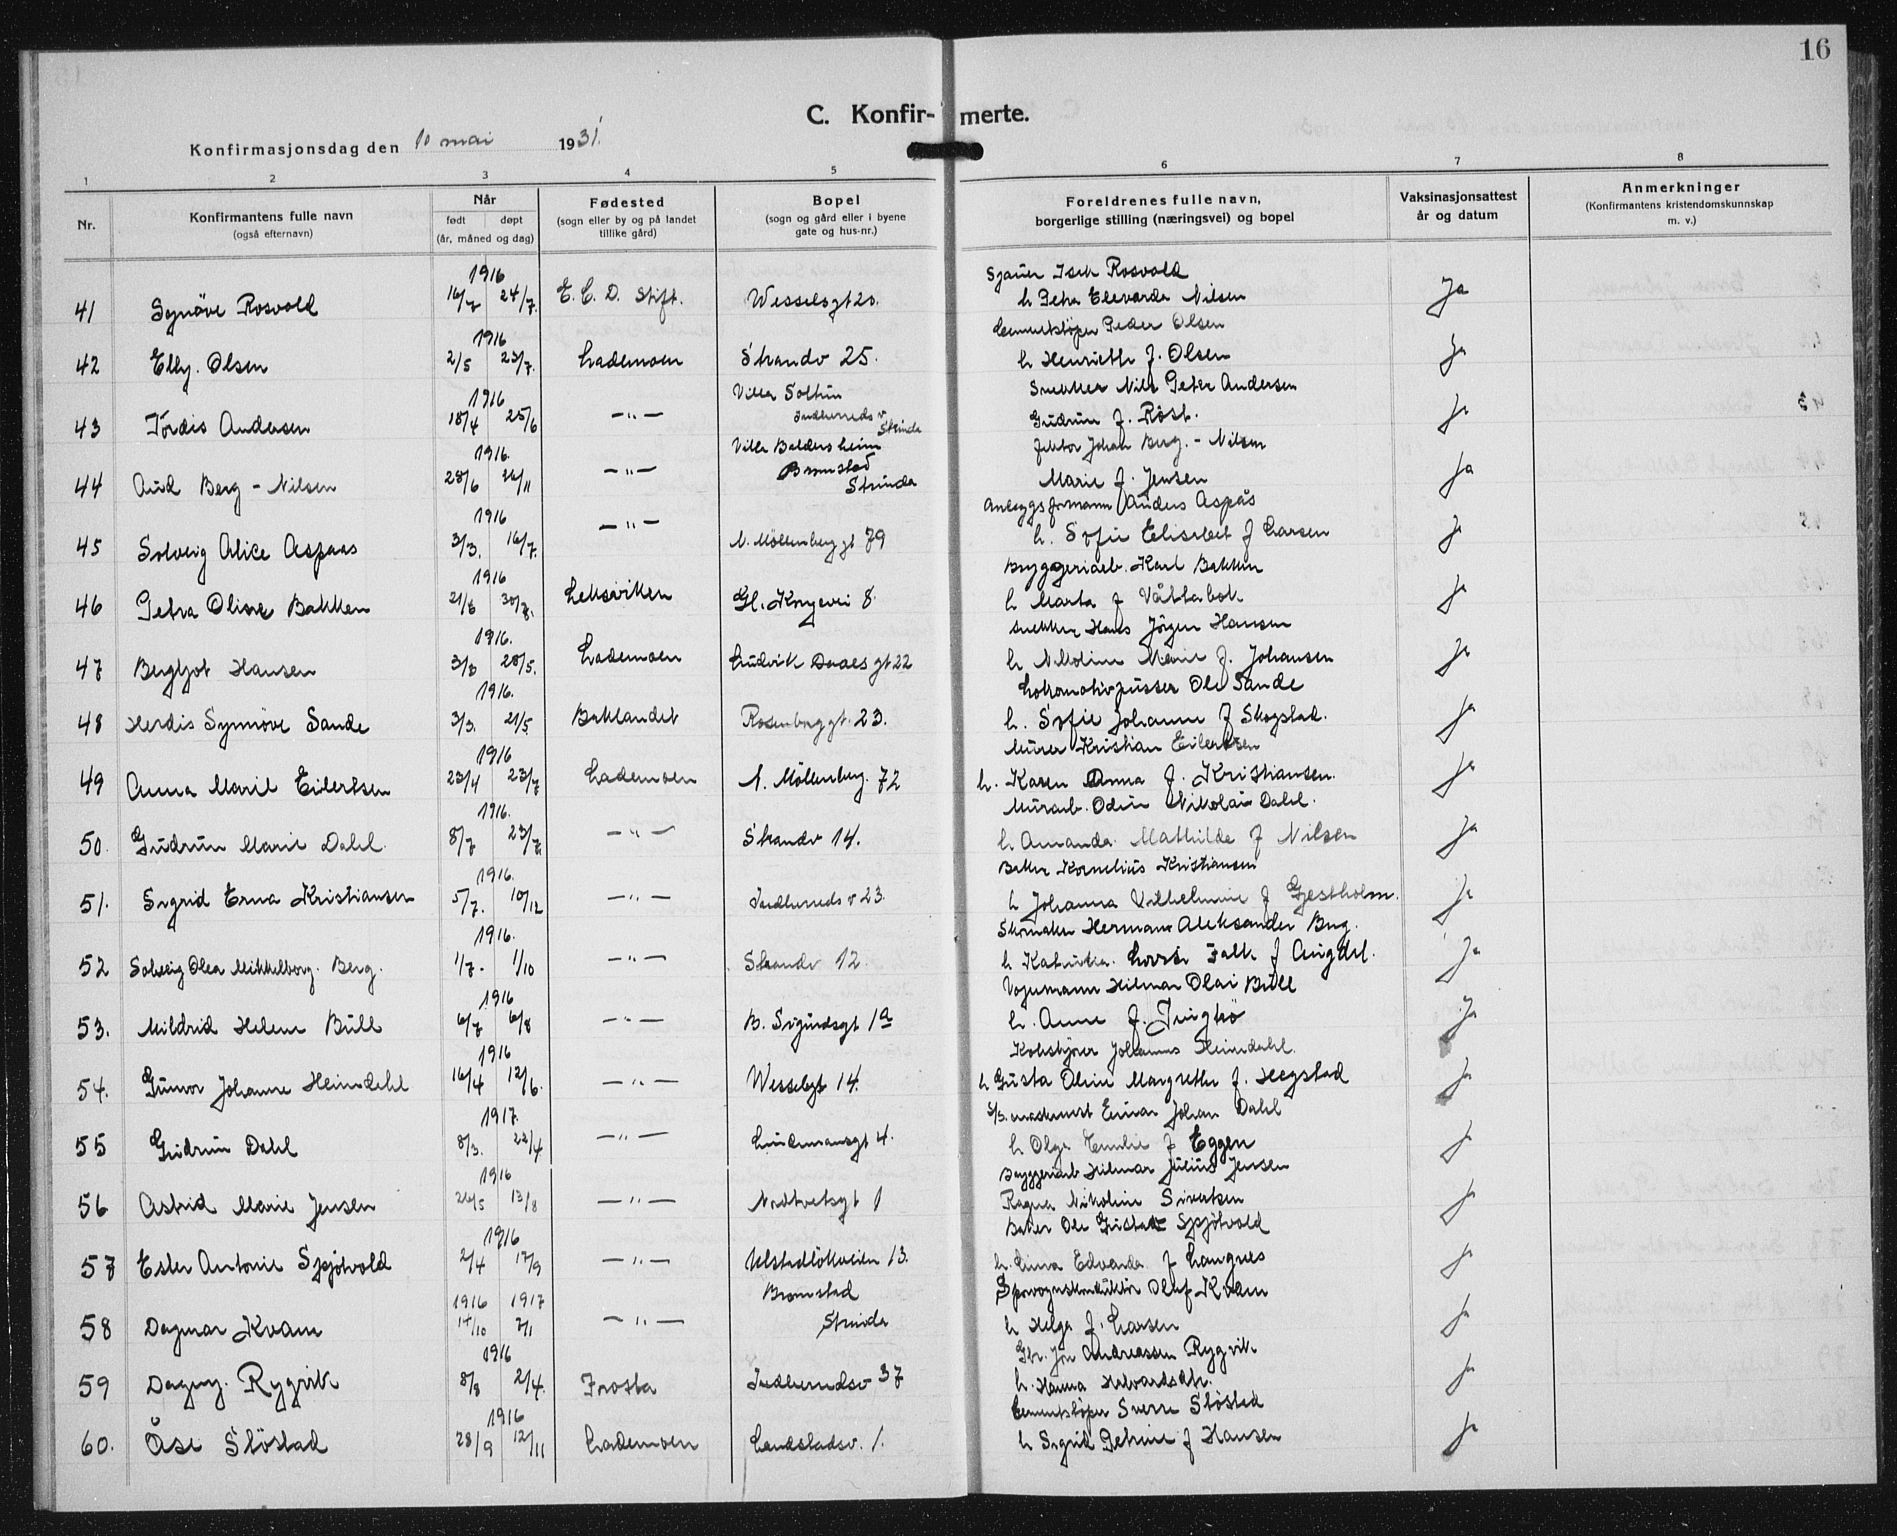 16
C. Konfir-merte.
Konfirmasjonsdag den 10 mai 1931.
1 2 3 4 5 6 7 8
Nr.
Konfirmantens fulle navn
(også efternavn)
Når
født døpt
(år, måned og dag)
Fødested
(sogn eller by og på landet
tillike gård)
Bopel
(sogn og gård eller i byene
gate og hus-nr.)
Foreldrenes fulle navn,
borgerlige stilling (næringsvei) og bopel
Vaksinasjonsattest
år og datum
Anmerkninger
(Konfirmantens kristendomskunnskap
m. v.)
1916 Rosvold
41 Synöve Rosvold 16/7 24/7. E. C. D. Stift. Wesselsgt 20. h Petra Nilsen Ja
1916 Peder Olsen
42 Elly. Olsen 2/5 23/7. Lademoen Strandv 25. h Henriette f. Olsen Ja
1916 Villa Solhim Snekker Nils Peter Andersen
43 Tordis Andersen 18/4 25/6 -"- Indherredsv Strinda Gudrun f. Röst. Ja
1916. Villa Baldersheim Johan Berg. - Nilsen
44 Aud Berg - Nilsen 28/6 26/11 -"- Bromstad Strinda Marie f. Jensen Ja
1916 Anlegsformann Anders Aspås
45 Solveig Alice Aspaas 3/3. 16/7. -"- N. Möllenberggt 79 h. Sofie Elisabet f Larsen Ja
1916 Bryggeriarb. Karl Bakken
46 Petra Oline Bakken 21/6 30/8. Leksviken Gl. Kongevei 8. h Marta f Ja
1916. Snekker Hans Jörgen Hansen
47 Bergljot Hansen 3/3 28/5. Lademoen Ludvik Daaes gt 22 h Nikoline Marie f. Johansen Ja
1916. Lokomotivpusser Ole Sande
48 Herdis Synnöve Sande 3/3. 21/5. Baklandet Rosenborggt. 23. h. Sofie Johanne f Skogstad. Ja
1916 Murer Kristian Eilertsen
49 Anna Maril Eilertsen 23/4 23/7 Lademoen N. Möllenberg. 72 h. Karen Anna f. Kristiansen. Ja
1916. Murarb. Odin Nikolai Dahl.
50. Gudrun Marie Dahl. 8/7 23/7. -"- Strandv 14. h Amanda Mathilde f Nilsen Ja
1916. Baker Kornelius Kristiansen
51. Sigrid Erna Kristiansen 5/7. 10/12 -"- Indherreds v 23. h Johanna Vilhelmine f Gjestholm. Ja
1916. Skomaker Herman Aleksander Berg.
52 Solveig Olea Mikkelborg. Berg. 1/7. 1/10 -"- Strandv 12. h Lovise Falk f Ja
1916 Vognmann Hilmar Olai Bull
53. Mildrid Helene Bull 6/7 6/8 -"- B. Sigurdsgt 1a h. Anne f. Ja
1916 Johannes Heimdahl.
54. Gunvor Johanne Heimdahl 16/4 12/6. -"- Wesselsgt 14. h Gusta Oline Margrethe f. Hegstad Ja
1917. Einar Johan Dahl
55 Gudrun Dahl 8/3. 22/4 -"- Lindemansgt 4. h Olga Emilie f Eggen Ja
1916 Bryggeriarb Hilmar Julius Jensen
56 Astrid Marie Jensen 26/5 13/8 -"- Nordtvetsgt 1 Ragna Nikoline Sivertsen Ja
1916 Baker Ole Gustav Spjötvold
57 Ester Antonie Spjötvold 2/4 17/9 -"- Ulstadlökveien 13. h. Edvarda f Langnes Ja
1916 1917 Bromstad Sporvognskonduktör Olaf Kvam
58 Dagmar Kvam 14/10 2/1 -"- Strinda h Helga f. Larsen Ja
1916 Andreassen Rygvik
59 Dagny. Rygvik 8/3 2/4. Frosta Indherredsv 37 h. Hanna Halvardsdtr. Ja
1916 Cementstöper Sverre Slöstad
60. Åse Slöstad 28/9 12/11 Lademoen Landstadsv. 1. h Sigrid Petrine f Hansen Ja